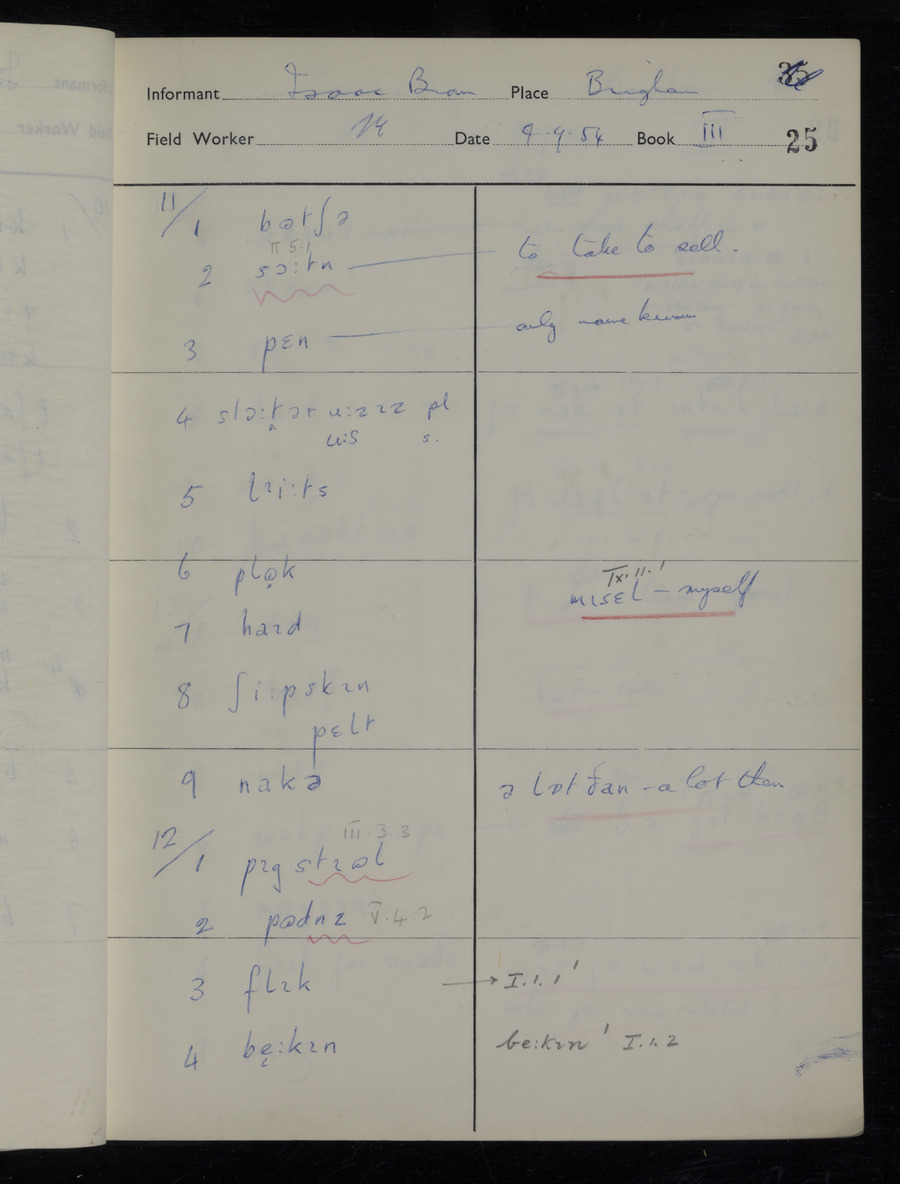 Informant Isaac Brown Place Brigham
Field Worker Date 9.9.54 Book III 25
11/1 bɵtʃə
II 5.1
2 sɔ:tn to take to sell.
3 pɛn only name known
4 slɔ:t̪ər u:zɪz pl
u:s s.
5 lɪi:ts
6 plɵ̣k
IX.11.1
7 haɪd mɪsɛl – myself
8 ʃi:pskɪn
pɛlt
9 nakə ə lɒt ðan – a lot then
III.3.3
12/1 pɪg strɵl
2 pɵdnz V.4.2
3 flɪk → I.1.1'
4 bẹ:kɪn be:kɪn' I.1.2